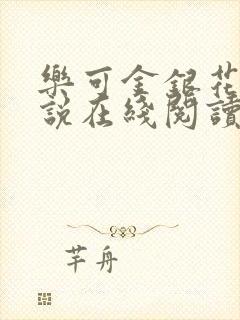 樂可金銀花
說在綫閱讀
芊舟